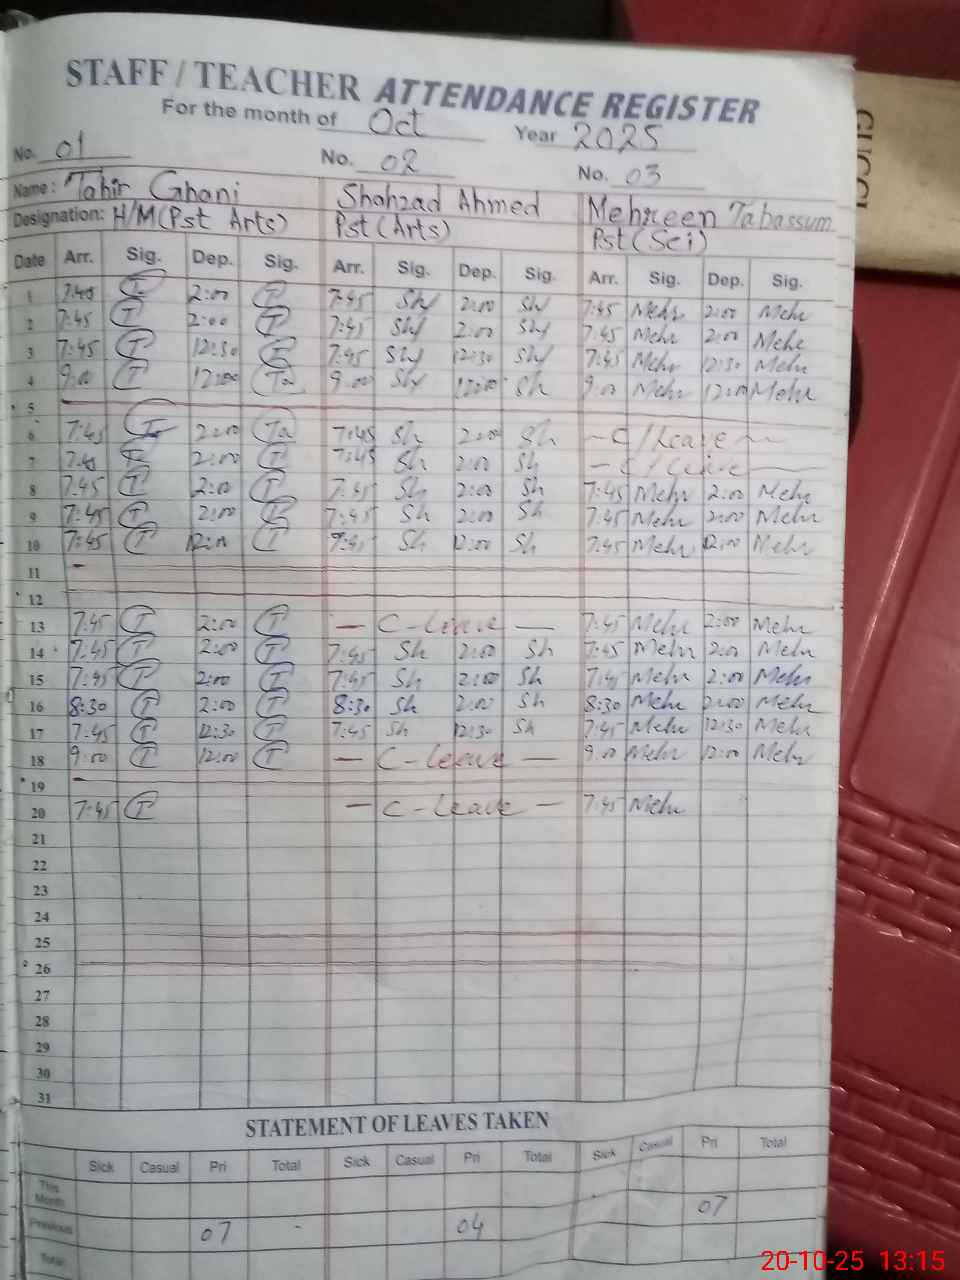 STAFF / TEACHER ATTENDANCE REGISTER
For the month of Oct Year 2025
No. 01 No. 02 No. 03
Name: Tahir Ghani Shahzad Ahmed Mehreen Tabassum
Designation: H/M(Pst Arts) Pst (Arts) Pst (Sci)
Date Arr. Sig. Dep. Sig. Arr. Sig. Dep. Sig. Arr. Sig. Dep. Sig.
1 7:45 T 2:00 T 7:45 Sh 2:00 Sh 7:45 Mehr 2:00 Mehr
2 7:45 T 2:00 T 7:45 Sh 2:00 Sh 7:45 Mehr 2:00 Mehr
3 7:45 T 12:30 T 7:45 Sh 12:30 Sh 7:45 Mehr 12:30 Mehr
4 9:00 T 12:00 Ta 9:00 Sh 12:00 Sh 9:00 Mehr 12:00 Mehr
5
6 7:45 T 2:00 Ta 7:45 Sh 2:00 Sh - C/Leave -
7 7:45 T 2:00 T 7:45 Sh 2:00 Sh - C/Leave -
8 7:45 T 2:00 T 7:45 Sh 2:00 Sh 7:45 Mehr 2:00 Mehr
9 7:45 T 2:00 T 7:45 Sh 2:00 Sh 7:45 Mehr 2:00 Mehr
10 7:45 T 12:00 T 7:45 Sh 12:00 Sh 7:45 Mehr 12:00 Mehr
11 -
12
13 7:45 T 2:00 T - C-leave - 7:45 Mehr 2:00 Mehr
14 7:45 T 2:00 T 7:45 Sh 2:00 Sh 7:45 Mehr 2:00 Mehr
15 7:45 T 2:00 T 7:45 Sh 2:00 Sh 7:45 Mehr 2:00 Mehr
16 8:30 T 2:00 T 8:30 Sh 2:00 Sh 8:30 Mehr 2:00 Mehr
17 7:45 T 12:30 T 7:45 Sh 12:30 Sh 7:45 Mehr 12:30 Mehr
18 9:00 T 12:00 T - C-leave - 9:00 Mehr 12:00 Mehr
19 -
20 7:45 T - C-leave - 7:45 Mehr
21
22
23
24
25
26
27
28
29
30
31
STATEMENT OF LEAVES TAKEN
Sick Casual Pri Total Sick Casual Pri Total Sick Casual Pri Total
This Month 07
Previous 07 - 04
Total
GUCCI
20-10-25 13:15